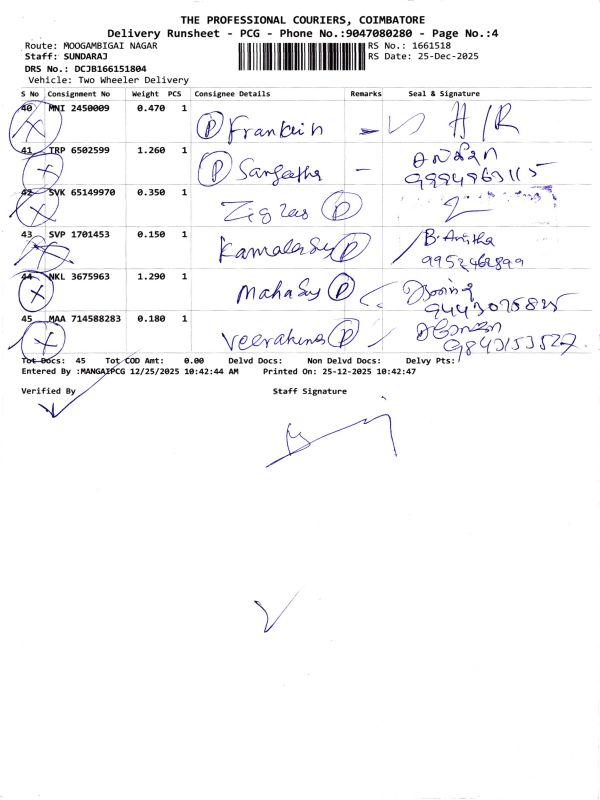 THE PROFESSIONAL COURIERS, COIMBATORE
Delivery Runsheet - PCG - Phone No.:9047080280 - Page No.:4
Route: MOOGAMBIGAI NAGAR RS No.: 1661518
Staff: SUNDARAJ RS Date: 25-Dec-2025
DRS No.: DCJB166151804
Vehicle: Two Wheeler Delivery
S No Consignment No Weight PCS Consignee Details Remarks Seal & Signature
40 MNI 2450009 0.470 1 P Franklin H/R
41 TRP 6502599 1.260 1 P Sangeetha
42 SVK 65149970 0.350 1 P
43 SVP 1701453 0.150 1 P B. Anitha
9952462899
44 NKL 3675963 1.290 1 P
9443075825
45 MAA 714588283 0.180 1 P
9843153527.
Tot Docs: 45 Tot COD Amt: 0.00 Delvd Docs: Non Delvd Docs: Delvy Pts:
Entered By :MANGAIPCG 12/25/2025 10:42:44 AM Printed On: 25-12-2025 10:42:47
Verified By Staff Signature